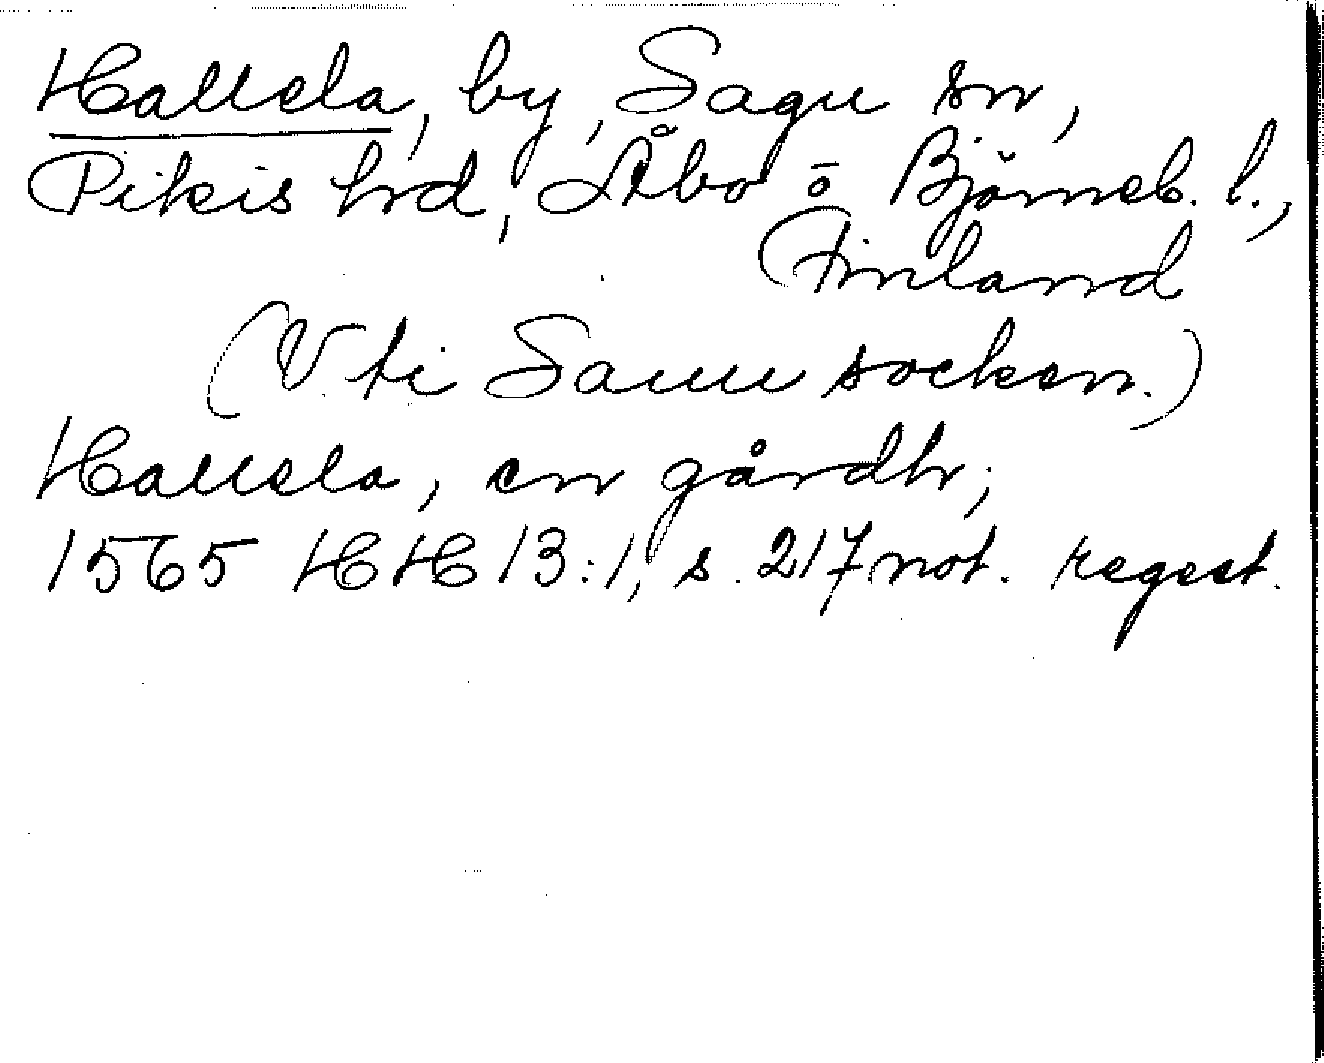 Hallela, by, Sagu sn,
Pikis hrd, Åbo o Björneb. l.,
Finland
(V. ti Sauu socken.)
Hallela, en gårdh;
1565 HH 13:1, s. 217 not. regest.